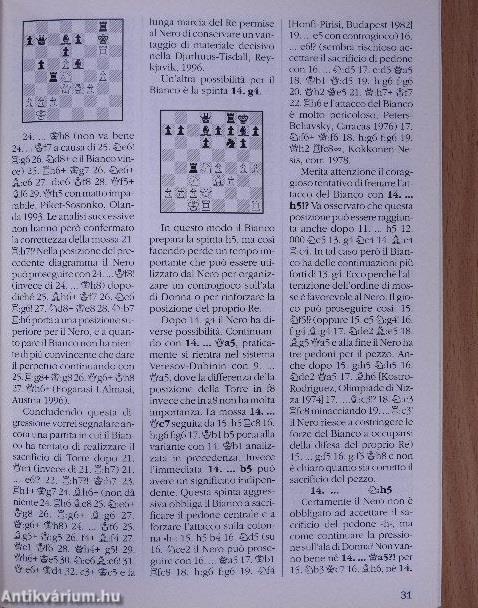 24. ... ♔h8 (non va bene
24. ... ♔f7 a causa di 25. ♘e6!
♖g6 26. ♘d8+ e il Bianco vin-
ce) 25. ♖h6+ ♔g7 26. ♘e6+
♗:e6 27. d:e6 ♔f8 28. ♕f5+
♗f6 29. ♕h5 con matto impa-
rabile, Piket-Sosonko, Olan-
da 1993. Le analisi successive
non hanno però confermato
la correttezza della mossa 21.
♖h7!? Nella posizione del pre-
cedente diagramma il Nero
può proseguire con 24. ... ♔f8!
(invece di 24. ... ♔h8) dopo-
diché 25. ♗h6+ ♔f7 26. ♘e6
♖g6! 27. ♘d8+ ♔e8 28. ♘:b7
♖:h6 porta a una posizione su-
periore per il Nero, e a quan-
to pare il Bianco non ha nien-
te di più convincente che dare
il perpetuo continuando con
25. ♖g8+ ♔:g8 26. ♕g6+ ♔h8
27. ♕h6+ (Fogarasi-I.Almasi,
Austria 1996).
Concludendo questa di-
gressione vorrei segnalare an-
cora una partita in cui il Bian-
co ha tentato di realizzare il
sacrificio di Torre dopo 21.
♕e1 (invece di 21. ♖:h7) 21.
... e6!? 22. ♖:h7?! ♔:h7 23.
♖h1+ ♔g7 24. ♗h6+ (non dà
niente 24. ♖h6 ♗e8 25. ♘:e6+
♔g8 26. ♖:g6+ ♗:g6 27.
♕:g6+ ♔h8) 24. ... ♔f6 25.
♗g5+ ♔:g5 26. f4+ ♗:f4 27.
♕e1 ♔f6 28. ♕h4+ g5! 29.
♕h6+ ♔e5 30. ♘:e6 ♗:e6! 31.
♕:e6+ ♔d4 32. c3+ ♔c5 e la
lunga marcia del Re permise
al Nero di conservare un van-
taggio di materiale decisivo
nella Djurhuus-Tisdall, Rey-
kjavik, 1996.
Un'altra possibilità per il
Bianco è la spinta 14. g4.
In questo modo il Bianco
prepara la spinta h5, ma così
facendo perde un tempo im-
portante che può essere uti-
lizzato dal Nero per organiz-
zare un controgioco sull'ala
di Donna o per rinforzare la
posizione del proprio Re.
Dopo 14. g4 il Nero ha di-
verse possibilità. Continuan-
do con 14. ... ♕a5, pratica-
mente si rientra nel sistema
Veresov-Dubinin con 9. ...
♕a5, dove la differenza della
posizione della Torre in f8
invece che in a8 non ha molta
importanza. La mossa 14. ...
♕c7 seguita da 15. h5 ♖c8 16.
h:g6 f:g6 17. ♔b1 b5 porta alla
variante con 14. ♔b1 analiz-
zata in precedenza. Invece
l'immediata 14. ... b5 può
avere un significato indipen-
dente. Questa spinta aggres-
siva obbliga il Bianco a sacri-
ficare il pedone centrale e a
forzare l'attacco sulla colon-
na «h»: 15. h5 b4 16. ♘d5 (su
16. ♘ce2 il Nero può prose-
guire con 16. ... ♕a5 17. ♔b1
♖fc8 18. h:g6 f:g6 19. ♘f4
[Honfi-Pirisi, Budapest 1982]
19. ... e5 con controgioco) 16.
... e6!? (sembra rischioso ac-
cettare il sacrificio di pedone
con 16. ... ♘:d5 17. e:d5 ♕a5
18. ♔b1 ♕:d5 19. h:g6 f:g6
20. ♕h2 ♔e5 21. ♕:h7+ ♔f7
22. ♖h6 e l'attacco del Bianco
è molto pericoloso, Peters-
Belyavsky, Caracas 1976) 17.
♘:f6+ ♕:f6 18. h:g6 f:g6 19.
♕h2 ♖fc8∞, Kokkonen-Ne-
sis, corr. 1978.
Merita attenzione il corag-
gioso tentativo di frenare l'at-
tacco del Bianco con 14. ...
h5!? Va osservato che questa
posizione può essere raggiun-
ta anche dopo 11. ... h5 12.
000 ♘e5 13. g4 ♘c4 14. ♗:c4
♖:c4, in tal caso però il Bian-
co ha delle continuazioni più
forti di 13. g4. Ecco perché l'al-
terazione dell'ordine di mos-
se è favorevole al Nero. Il gio-
co può proseguire così: 15.
♘f5!? (oppure 15. e5 ♘:g4 16.
f:g4 ♗:g4 17. ♘de2 ♗:e5 18.
♗g5 ♕a5 e alla fine il Nero ha
tre pedoni per il pezzo. An-
che dopo 15. g:h5 ♘:h5 16.
♘de2 ♕a5 17. ♗h6 [Kostro-
Rodriguez, Olimpiade di Niz-
za 1974] 17. ... ♗:c3!? 18. ♘:c3
♖fc8 minacciando 19. ... ♖:c3!
il Nero riesce a costringere le
forze del Bianco a occuparsi
della difesa del proprio Re)
15. ... g:f5 16. g:f5 ♔h8 e non
è chiaro quanto sia corretto il
sacrificio del pezzo.
14. ... ♘:h5
Certamente il Nero non è
obbligato ad accettare il sa-
crificio del pedone «h», ma
come continuare la pressio-
ne sull'ala di Donna? Non van-
no bene né 14. ... ♕a5?! per
15. ♘b3 ♕c7 16. ♗h6, né 14.
31
Antikvárium.hu